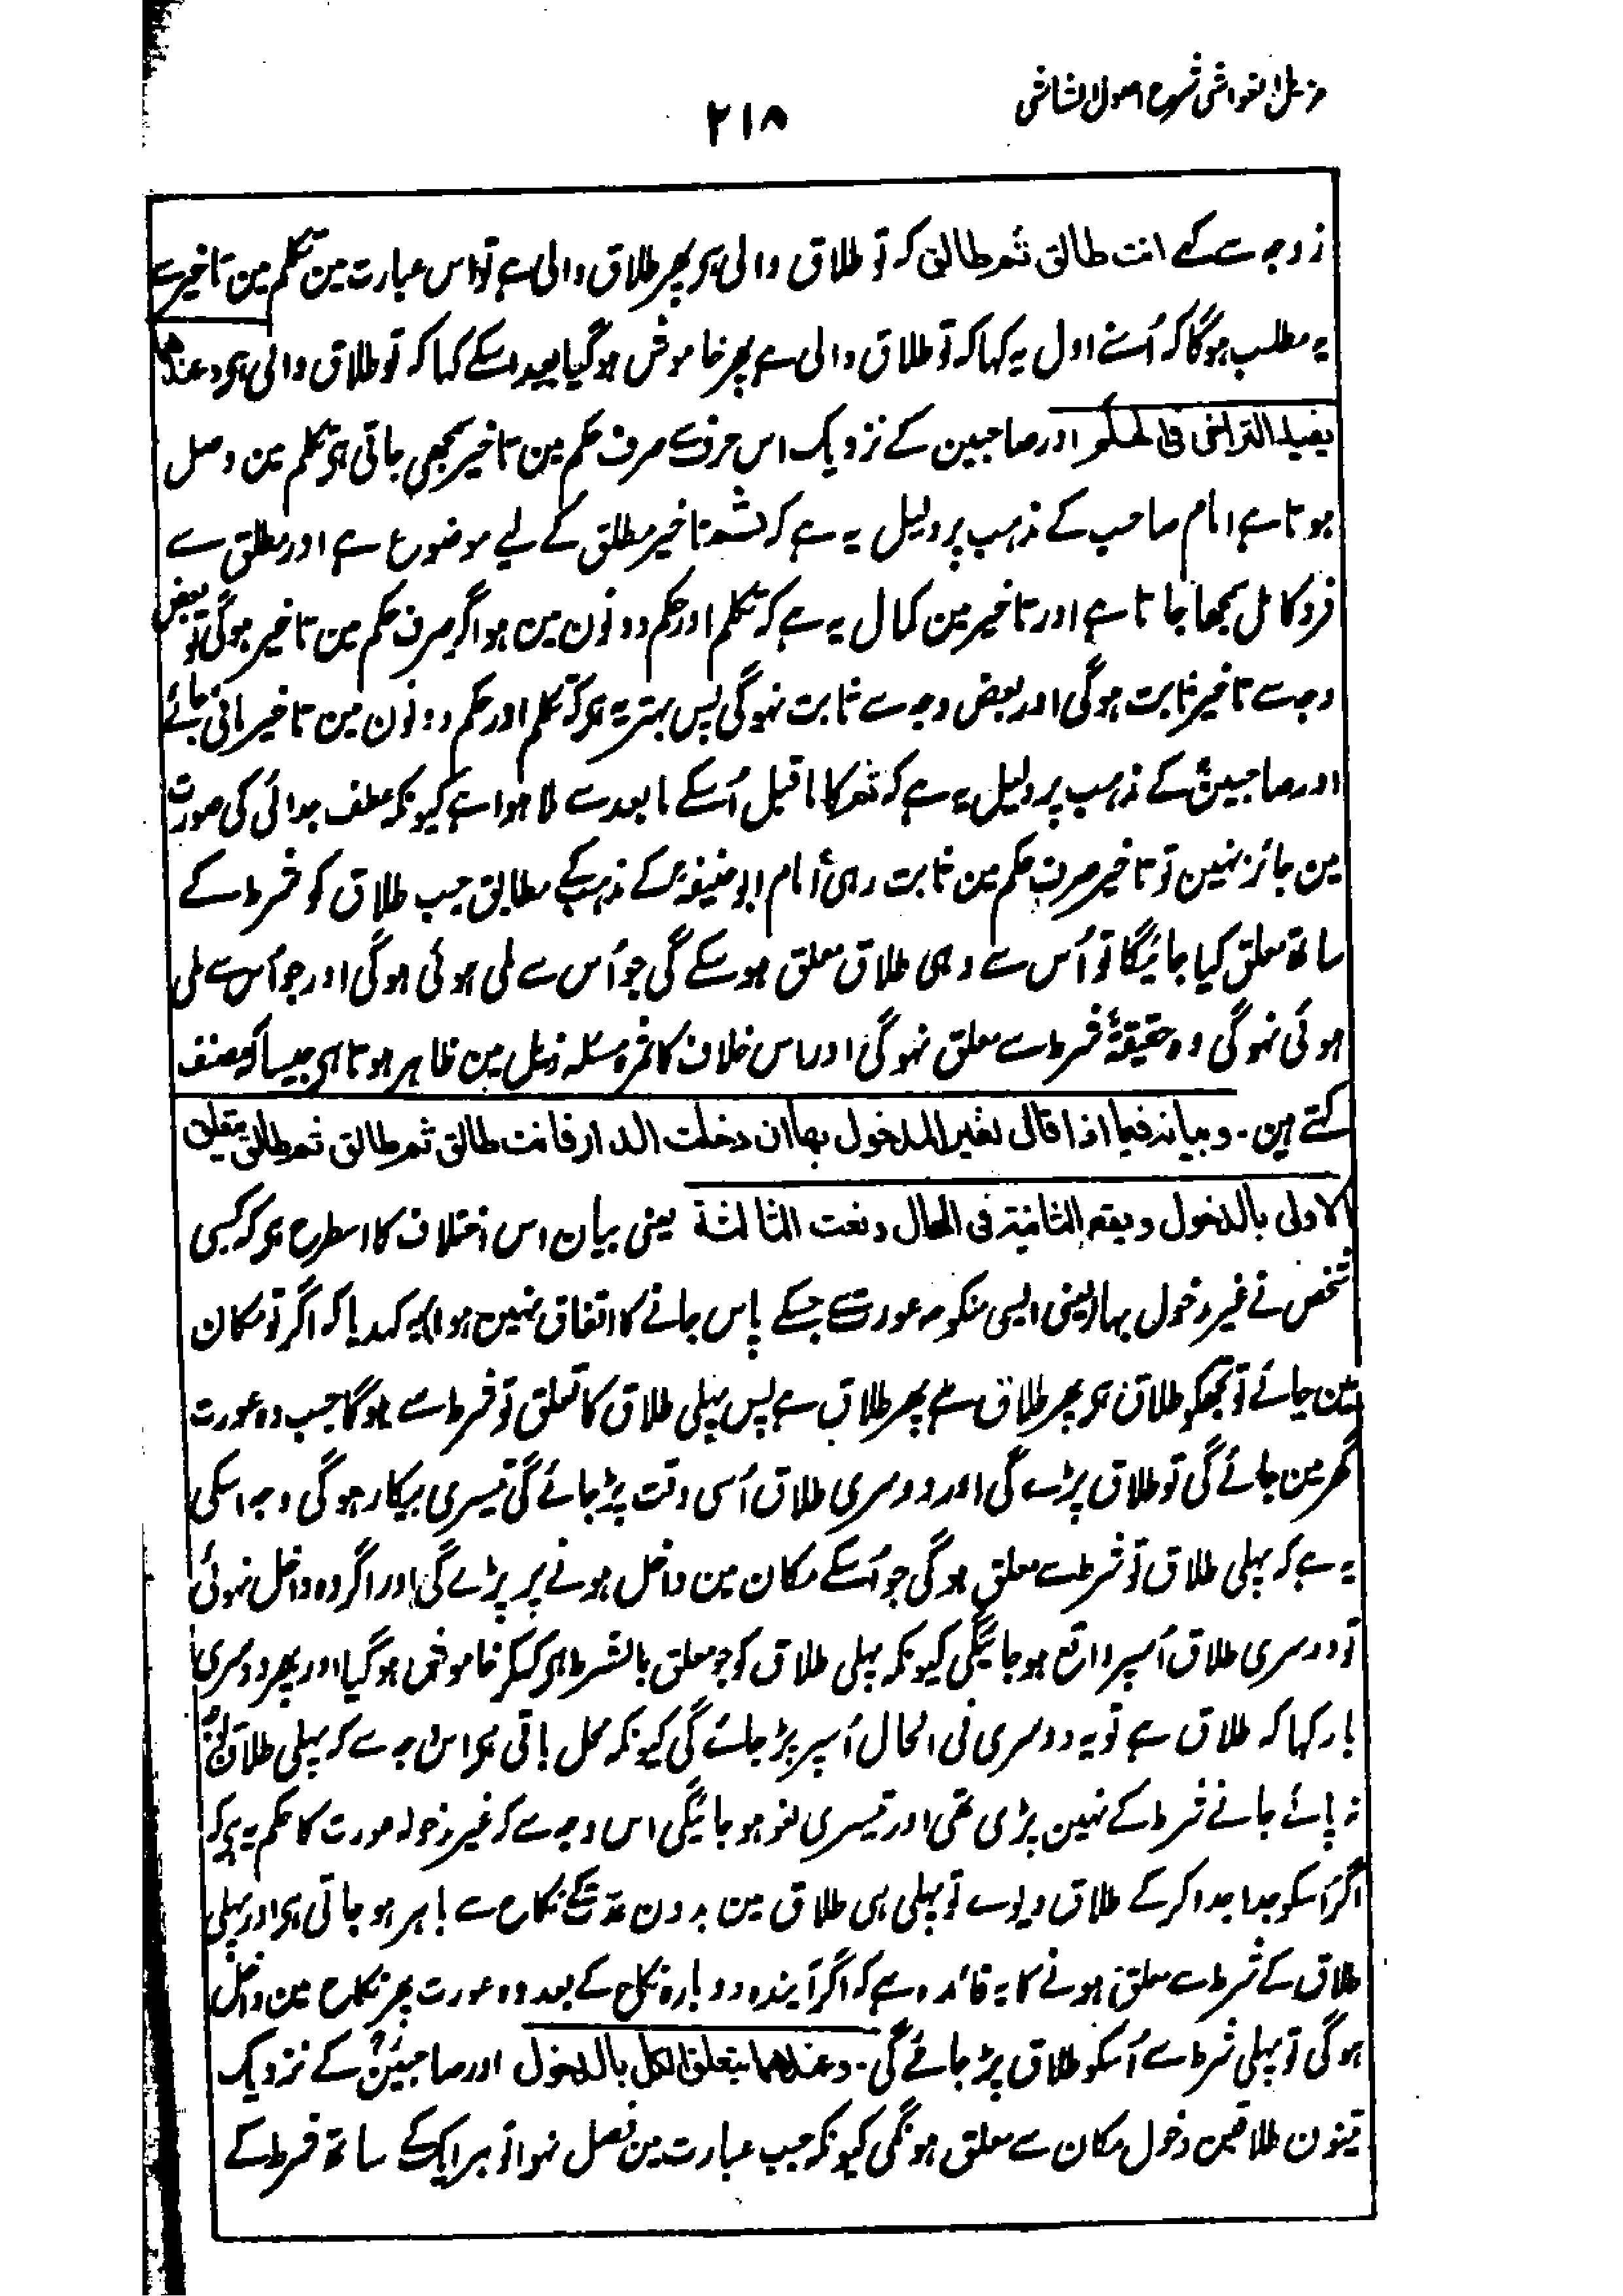 مزیل الغواشی شرح اصول الشاشی
۲۱۸
زوجہ سے کہے انت طالق ثم طالق کہ تو طلاق والی ہی پھر طلاق والی ہے تو اس عبارت مین تکلم مین تاخیر سے
یہ مطلب ہوگا کہ اُسنے اول یہ کہا کہ تو طلاق والی ہے پھر خاموش ہوگیا بعد اسکے کہا کہ تو طلاق والی ہی وعندهما
یفید التراخی فی الحکم اور صاحبین کے نزدیک اس حرف سے صرف حکم مین تاخیر سمجھی جاتی ہی تکلم مین وصل
ہوتا ہے امام صاحب کے مذہب پر دلیل یہ ہے کہ ثم تاخیر مطلق کے لیے موضوع ہے اور مطلق سے
فرد کامل سمجھا جاتا ہے اور تاخیر مین کمال یہ ہے کہ تکلم اور حکم دونون مین ہو اگر صرف حکم مین تاخیر ہوگی تو بعض
وجہ سے تاخیر ثابت ہوگی اور بعض وجہ سے ثابت نہوگی پس بہتر یہ ہی کہ تکلم اور حکم دونون مین تاخیر مانی جائے
اور صاحبینؒ کے مذہب پر دلیل یہ ہے کہ ثم کا ماقبل اُسکے مابعد سے ملا ہوا ہے کیونکہ عطف جدائی کی صورت
مین جائز نہین تو تاخیر صرف حکم مین ثابت رہی امام ابوحنیفہؒ کے مذہب کے مطابق جب طلاق کو شرط کے
ساتھ معلق کیا جائیگا تو اُس سے وہی طلاق معلق ہوسکے گی جو اُس سے ملی ہوئی ہوگی اور جو اُس سے ملی
ہوئی نہوگی وہ حقیقۃً شرط سے معلق نہوگی اور اس خلاف کا ثمرہ مسئلہ ذیل مین ظاہر ہوتا ہی جیسا کہ مصنف
کہتے ہین ۔ وبیانه فیما اذا قال لغیر المدخول بها ان دخلت الدار فانت طالق ثم طالق ثم طالق یتعلق
الاولی بالدخول ویقع الثانیة فی الحال ولغت الثالثة یعنی بیان اس اختلاف کا اسطرح ہی کہ کسی
شخص نے غیر دخول بہا (یعنی ایسی منکوحہ عورت سے جسکے پاس جانے کا اتفاق نہین ہوا) یہ کہدیا کہ اگر تو مکان
مین جائے تو تجھکو طلاق ہی پھر طلاق ہے پھر طلاق ہے پس پہلی طلاق کا تعلق تو شرط سے ہوگا جب وہ عورت
گھر مین جائے گی تو طلاق پڑے گی اور دوسری طلاق اُسی وقت پڑ جائے گی تیسری بیکار ہوگی وجہ اسکی
یہ ہے کہ پہلی طلاق تو شرط سے معلق ہوگی جو اُسکے مکان مین داخل ہونے پر پڑے گی اور اگر وہ داخل نہوئی
تو دوسری طلاق اُسپر واقع ہوجائیگی کیونکہ پہلی طلاق کو جو معلق بالشرط ہی کہکر خاموش ہوگیا اور پھر دوسری
بار کہا کہ طلاق ہے تو یہ دوسری فی الحال اُسپر پڑ جائے گی کیونکہ محل باقی ہی اس وجہ سے کہ پہلی طلاق
نہ پائے جانے شرط کے نہین پڑی تھی اور تیسری لغو ہوجائیگی اس وجہ سے کہ غیر مدخولہ عورت کا حکم یہ ہی کہ
اگر اُسکو جدا جدا کرکے طلاق دیوے تو پہلی ہی طلاق مین بدون عدت کے نکاح سے باہر ہوجاتی ہی اور پہلی
طلاق کے شرط سے معلق ہونے کا یہ فائدہ ہے کہ اگر آیندہ دوبارہ نکاح کے بعد وہ عورت پھر نکاح مین داخل
ہوگی تو پہلی شرط سے اُسکو طلاق پڑ جائے گی ۔ وعندهما یتعلق الکل بالدخول اور صاحبینؒ کے نزدیک
تینون طلاقین دخول مکان سے معلق ہونگی کیونکہ جب عبارت مین فصل نہوا تو ہر ایک کے ساتھ شرط کے